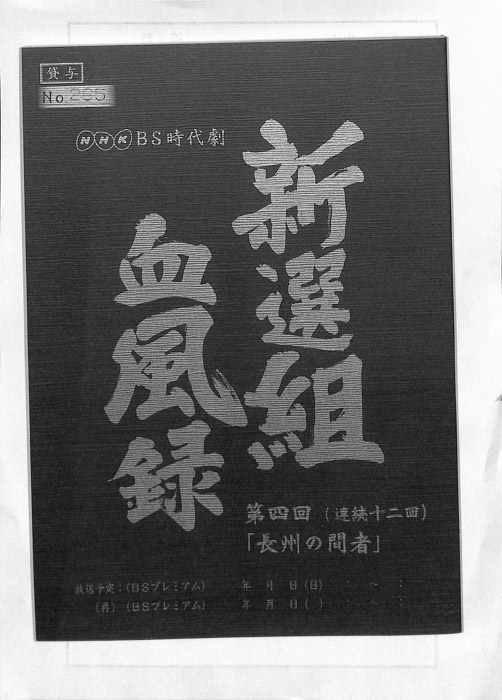 貸与
No. 255
NHK BS時代劇
新選組
血風録
第四回(連続十二回)
「長州の間者」
放送予定:(BSプレミアム) 年 月 日(日) : ~ :
(再) (BSプレミアム) 年 月 日( ) : ~ :